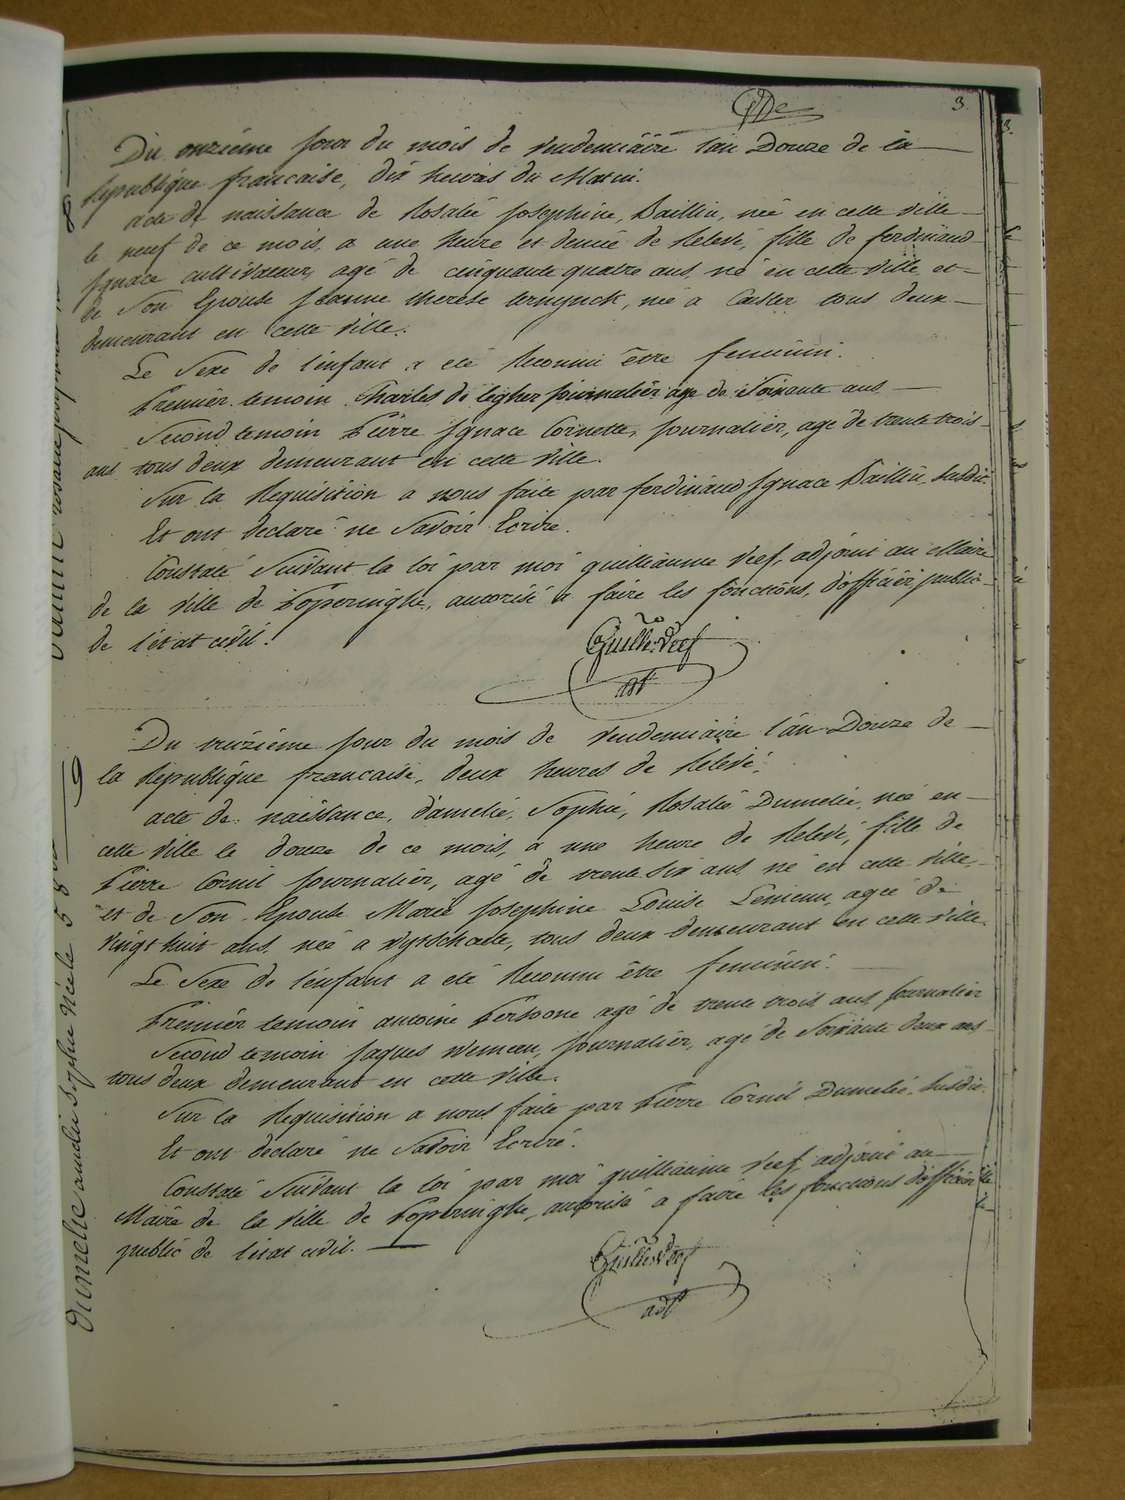 3
Du onzieme jour du mois de vendemiaire l'an Douze de la
Republique francaise, dix heures du Matin.
acte de naissance de Rosalie Josephine, Baillin, née en cette ville
le neuf de ce mois, a une heure et demie de Relevé, fille de ferdinand
Ignace cultivateur, agé de cinquante quatre ans, né en cette ville et
de Son Epouse Jeanne therese ternynck, née a Caster tous deux
demeurant en cette ville.
Le Sexe de l'enfant a eté Reconnu être feminin.
Premier temoin Charles de legher journalier agé de Soixante ans
Second temoin Pierre Ignace Cornette, journalier, agé de trente trois
ans tous deux demeurant en cette ville.
Sur la Requisition a nous faite par ferdinand Ignace Baillin, susdit.
Et ont declaré ne Savoir Ecrire.
Constaté Suivant la loi par moi guilliaume Veef, adjoint au Maire
de la ville de Poperinghe, autorisé a faire les fonctions, d'officier public
de l'état civil.
Guille: Veef
adt
Du treizieme jour du mois de vendemiaire l'an Douze de
la Republique francaise, deux heures de Relevé.
acte de naissance, d'amelie, Sophie, Rosalie Dumelie, née en
cette ville le douze de ce mois, a une heure de Relevé, fille de
Pierre Cornil journalier, agé de trente six ans né en cette ville,
et de Son Epouse Marie Josephine Louise Lemieu, agée de
vingt huit ans, née a wytschaete, tous deux demeurant en cette ville.
Le Sexe de l'enfant a eté Reconnu être feminin.
Premier temoin antoine Persoone agé de trente trois ans journalier
Second temoin Jaques, journalier, agé de Soixante deux ans
tous deux demeurant en cette ville.
Sur la Requisition a nous faite par Pierre Cornil Dumelie, susdit.
Et ont declaré ne Savoir Ecrire.
Constaté Suivant la loi par moi guilliaume Veef, adjoint au
Maire de la ville de Poperinghe, autorisé a faire les fonctions d'officier
public de l'état civil.
Guille: Veef
adt
Dumelie amelie Sophie Née le 5 8bre 9